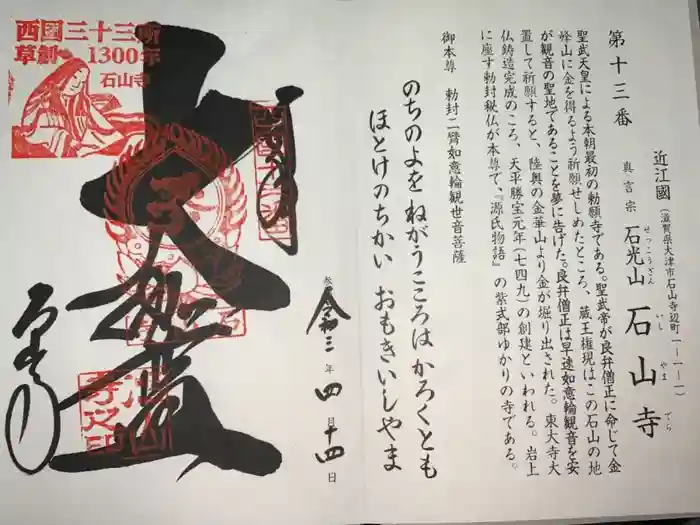 第十三番
近江國（滋賀県大津市石山寺辺町一ー一ー一）
真言宗 石光山 石山寺
せっこうざん いしやまでら
聖武天皇による本朝最初の勅願寺である。聖武帝が良弁僧正に命じて金
峰山に金を得るよう祈願せしめたところ、蔵王権現はこの石山の地
が観音の聖地であることを夢に告げた。良弁僧正は早速如意輪観音を安
置して祈願すると、陸奥の金華山より金が掘り出された。東大寺大
仏鋳造完成のころ、天平勝宝元年（七四九）の創建といわれる。岩上
に座す勅封秘仏が本尊で、『源氏物語』の紫式部ゆかりの寺である。
御本尊 勅封二臂如意輪観世音菩薩
のちのよを ねがうこころは かろくとも
ほとけのちかい おもきいしやま
令和三年四月十四日
西國三十三所
草創1300年
石山寺
大悲殿
石山寺